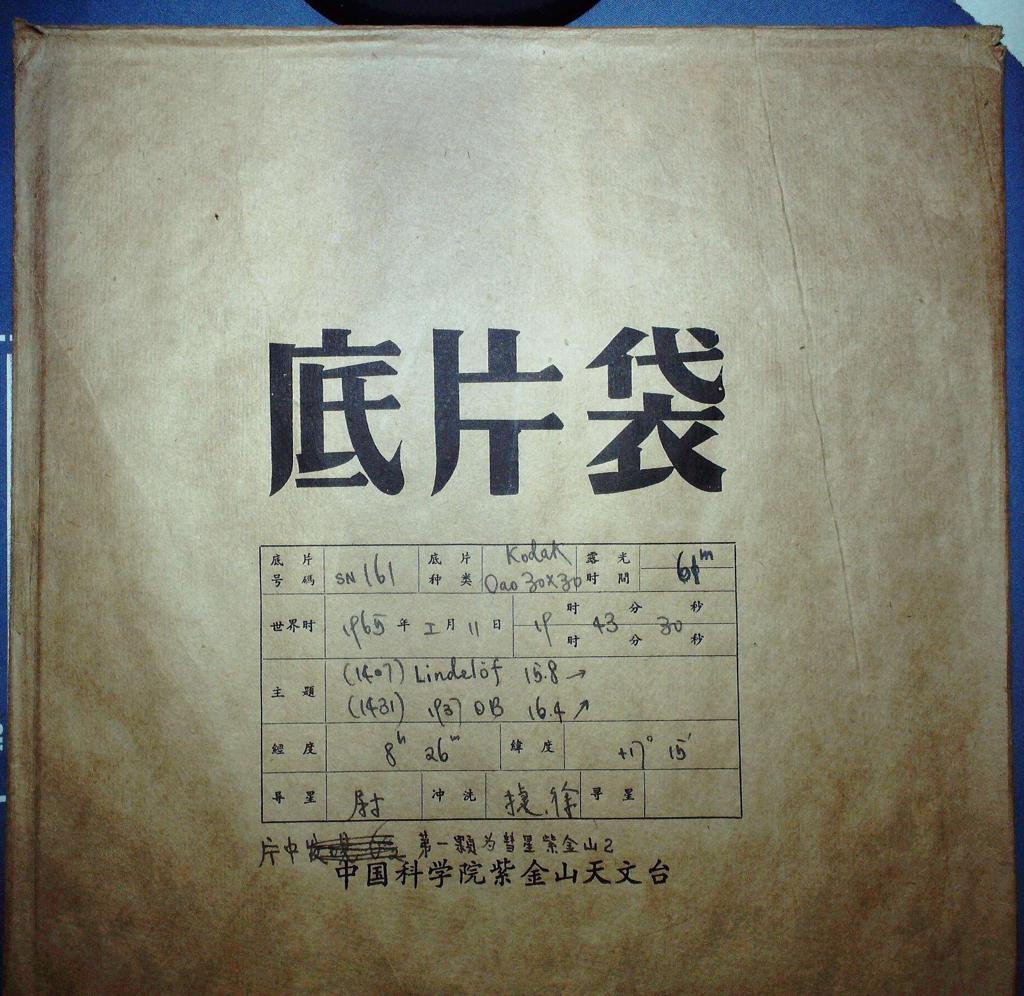 底片袋
底片号碼 SN 161 底片种类 Kodak Oao 30×30 露光时間 61m
世界时 1965 年 I 月 11 日 19 时 43 分 30 秒
时 分 秒
主題 (1407) Lindelöf 15.8 →
(1431) 1937 OB 16.4 ↗
經度 8h 26m 緯度 +17° 15′
导星 尉 冲洗 徐 导星
片中 第一顆为彗星紫金山2
中国科学院紫金山天文台